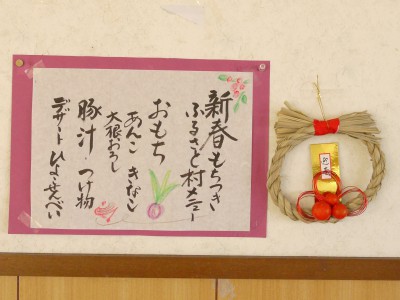 新春もちつき
ふるさと村メニュー
おもち
あんこ きなこ
大根おろし
豚汁・つけ物
デザート ひよ・せんべい